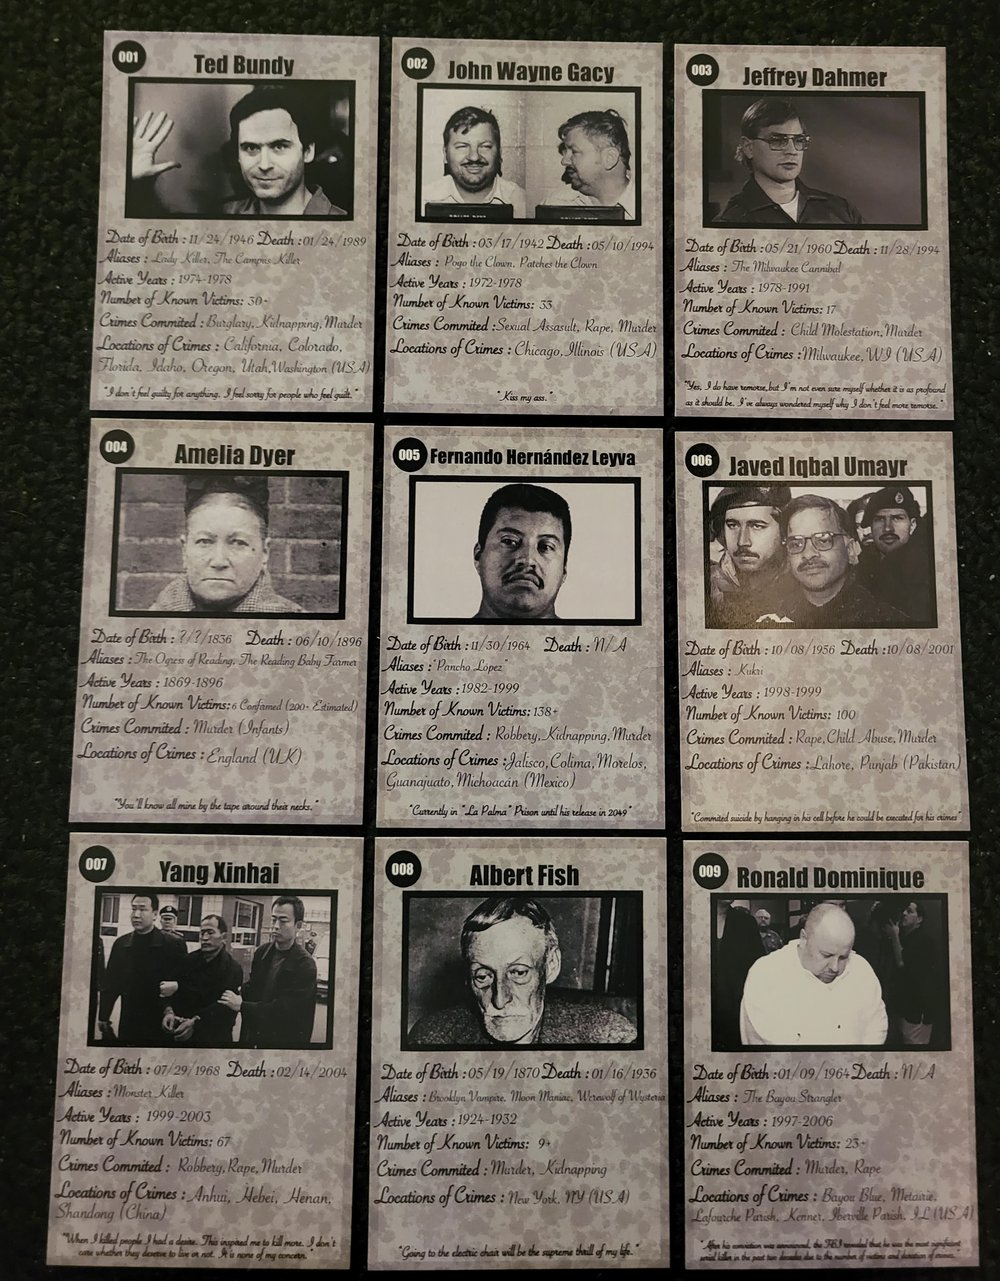 001
Ted Bundy
Date of Birth : 11/24/1946 Death : 01/24/1989
Aliases : Lady Killer, The Campus Killer
Active Years : 1974-1978
Number of Known Victims: 30+
Crimes Commited : Burglary, Kidnapping, Murder
Locations of Crimes : California, Colorado,
Florida, Idaho, Oregon, Utah, Washington (USA)
"I don't feel guilty for anything. I feel sorry for people who feel guilt."
002
John Wayne Gacy
Date of Birth : 03/17/1942 Death : 05/10/1994
Aliases : Pogo the Clown, Patches the Clown
Active Years : 1972-1978
Number of Known Victims: 33
Crimes Commited : Sexual Assasult, Rape, Murder
Locations of Crimes : Chicago, Illinois (USA)
"Kiss my ass."
003
Jeffrey Dahmer
Date of Birth : 05/21/1960 Death : 11/28/1994
Aliases : The Milwaukee Cannibal
Active Years : 1978-1991
Number of Known Victims: 17
Crimes Commited : Child Molestation, Murder
Locations of Crimes : Milwaukee, WI (USA)
"Yes, I do have remorse, but I'm not even sure myself whether it is as profound
as it should be. I've always wondered myself why I don't feel more remorse."
004
Amelia Dyer
Date of Birth : ?/?/1836 Death : 06/10/1896
Aliases : The Ogress of Reading, The Reading Baby Farmer
Active Years : 1869-1896
Number of Known Victims: 6 Confirmed (200+ Estimated)
Crimes Commited : Murder (Infants)
Locations of Crimes : England (UK)
"You'll know all mine by the tape around their necks."
005
Fernando Hernández Leyva
Date of Birth : 11/30/1964 Death : N/A
Aliases : "Pancho López"
Active Years : 1982-1999
Number of Known Victims: 138+
Crimes Commited : Robbery, Kidnapping, Murder
Locations of Crimes : Jalisco, Colima, Morelos,
Guanajuato, Michoacán (Mexico)
"Currently in "La Palma" Prison until his release in 2049"
006
Javed Iqbal Umayr
Date of Birth : 10/08/1956 Death : 10/08/2001
Aliases : Kukri
Active Years : 1998-1999
Number of Known Victims: 100
Crimes Commited : Rape, Child Abuse, Murder
Locations of Crimes : Lahore, Punjab (Pakistan)
"Commited suicide by hanging in his cell before he could be executed for his crimes"
007
Yang Xinhai
Date of Birth : 07/29/1968 Death : 02/14/2004
Aliases : Monster Killer
Active Years : 1999-2003
Number of Known Victims: 67
Crimes Commited : Robbery, Rape, Murder
Locations of Crimes : Anhui, Hebei, Henan,
Shandong (China)
"When I killed people I had a desire. This inspired me to kill more. I don't
care whether they deserve to live or not. It is none of my concern."
008
Albert Fish
Date of Birth : 05/19/1870 Death : 01/16/1936
Aliases : Brooklyn Vampire, Moon Maniac, Werewolf of Wysteria
Active Years : 1924-1932
Number of Known Victims: 9+
Crimes Commited : Murder, Kidnapping
Locations of Crimes : New York, NY (USA)
"Going to the electric chair will be the supreme thrill of my life."
009
Ronald Dominique
Date of Birth : 01/09/1964 Death : N/A
Aliases : The Bayou Strangler
Active Years : 1997-2006
Number of Known Victims: 23+
Crimes Commited : Murder, Rape
Locations of Crimes : Bayou Blue, Metairie,
Lafourche Parish, Kenner, Iberville Parish, IL (USA)
"After his conviction was announced, the FBI revealed that he was the most significant
serial killer in the past two decades due to the number of victims and duration of crimes."